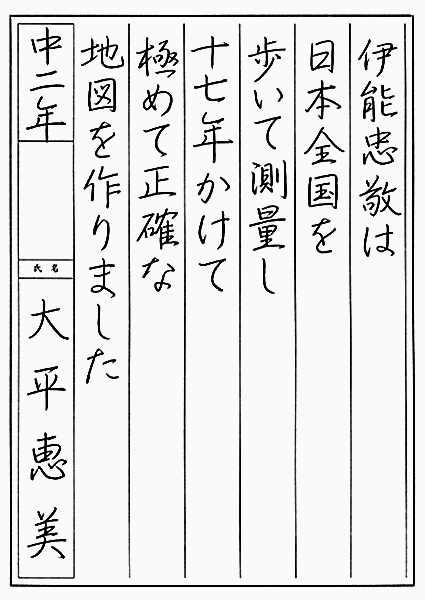 伊能忠敬は
日本全国を
歩いて測量し
十七年かけて
極めて正確な
地図を作りました
中二年
氏名
大平恵美